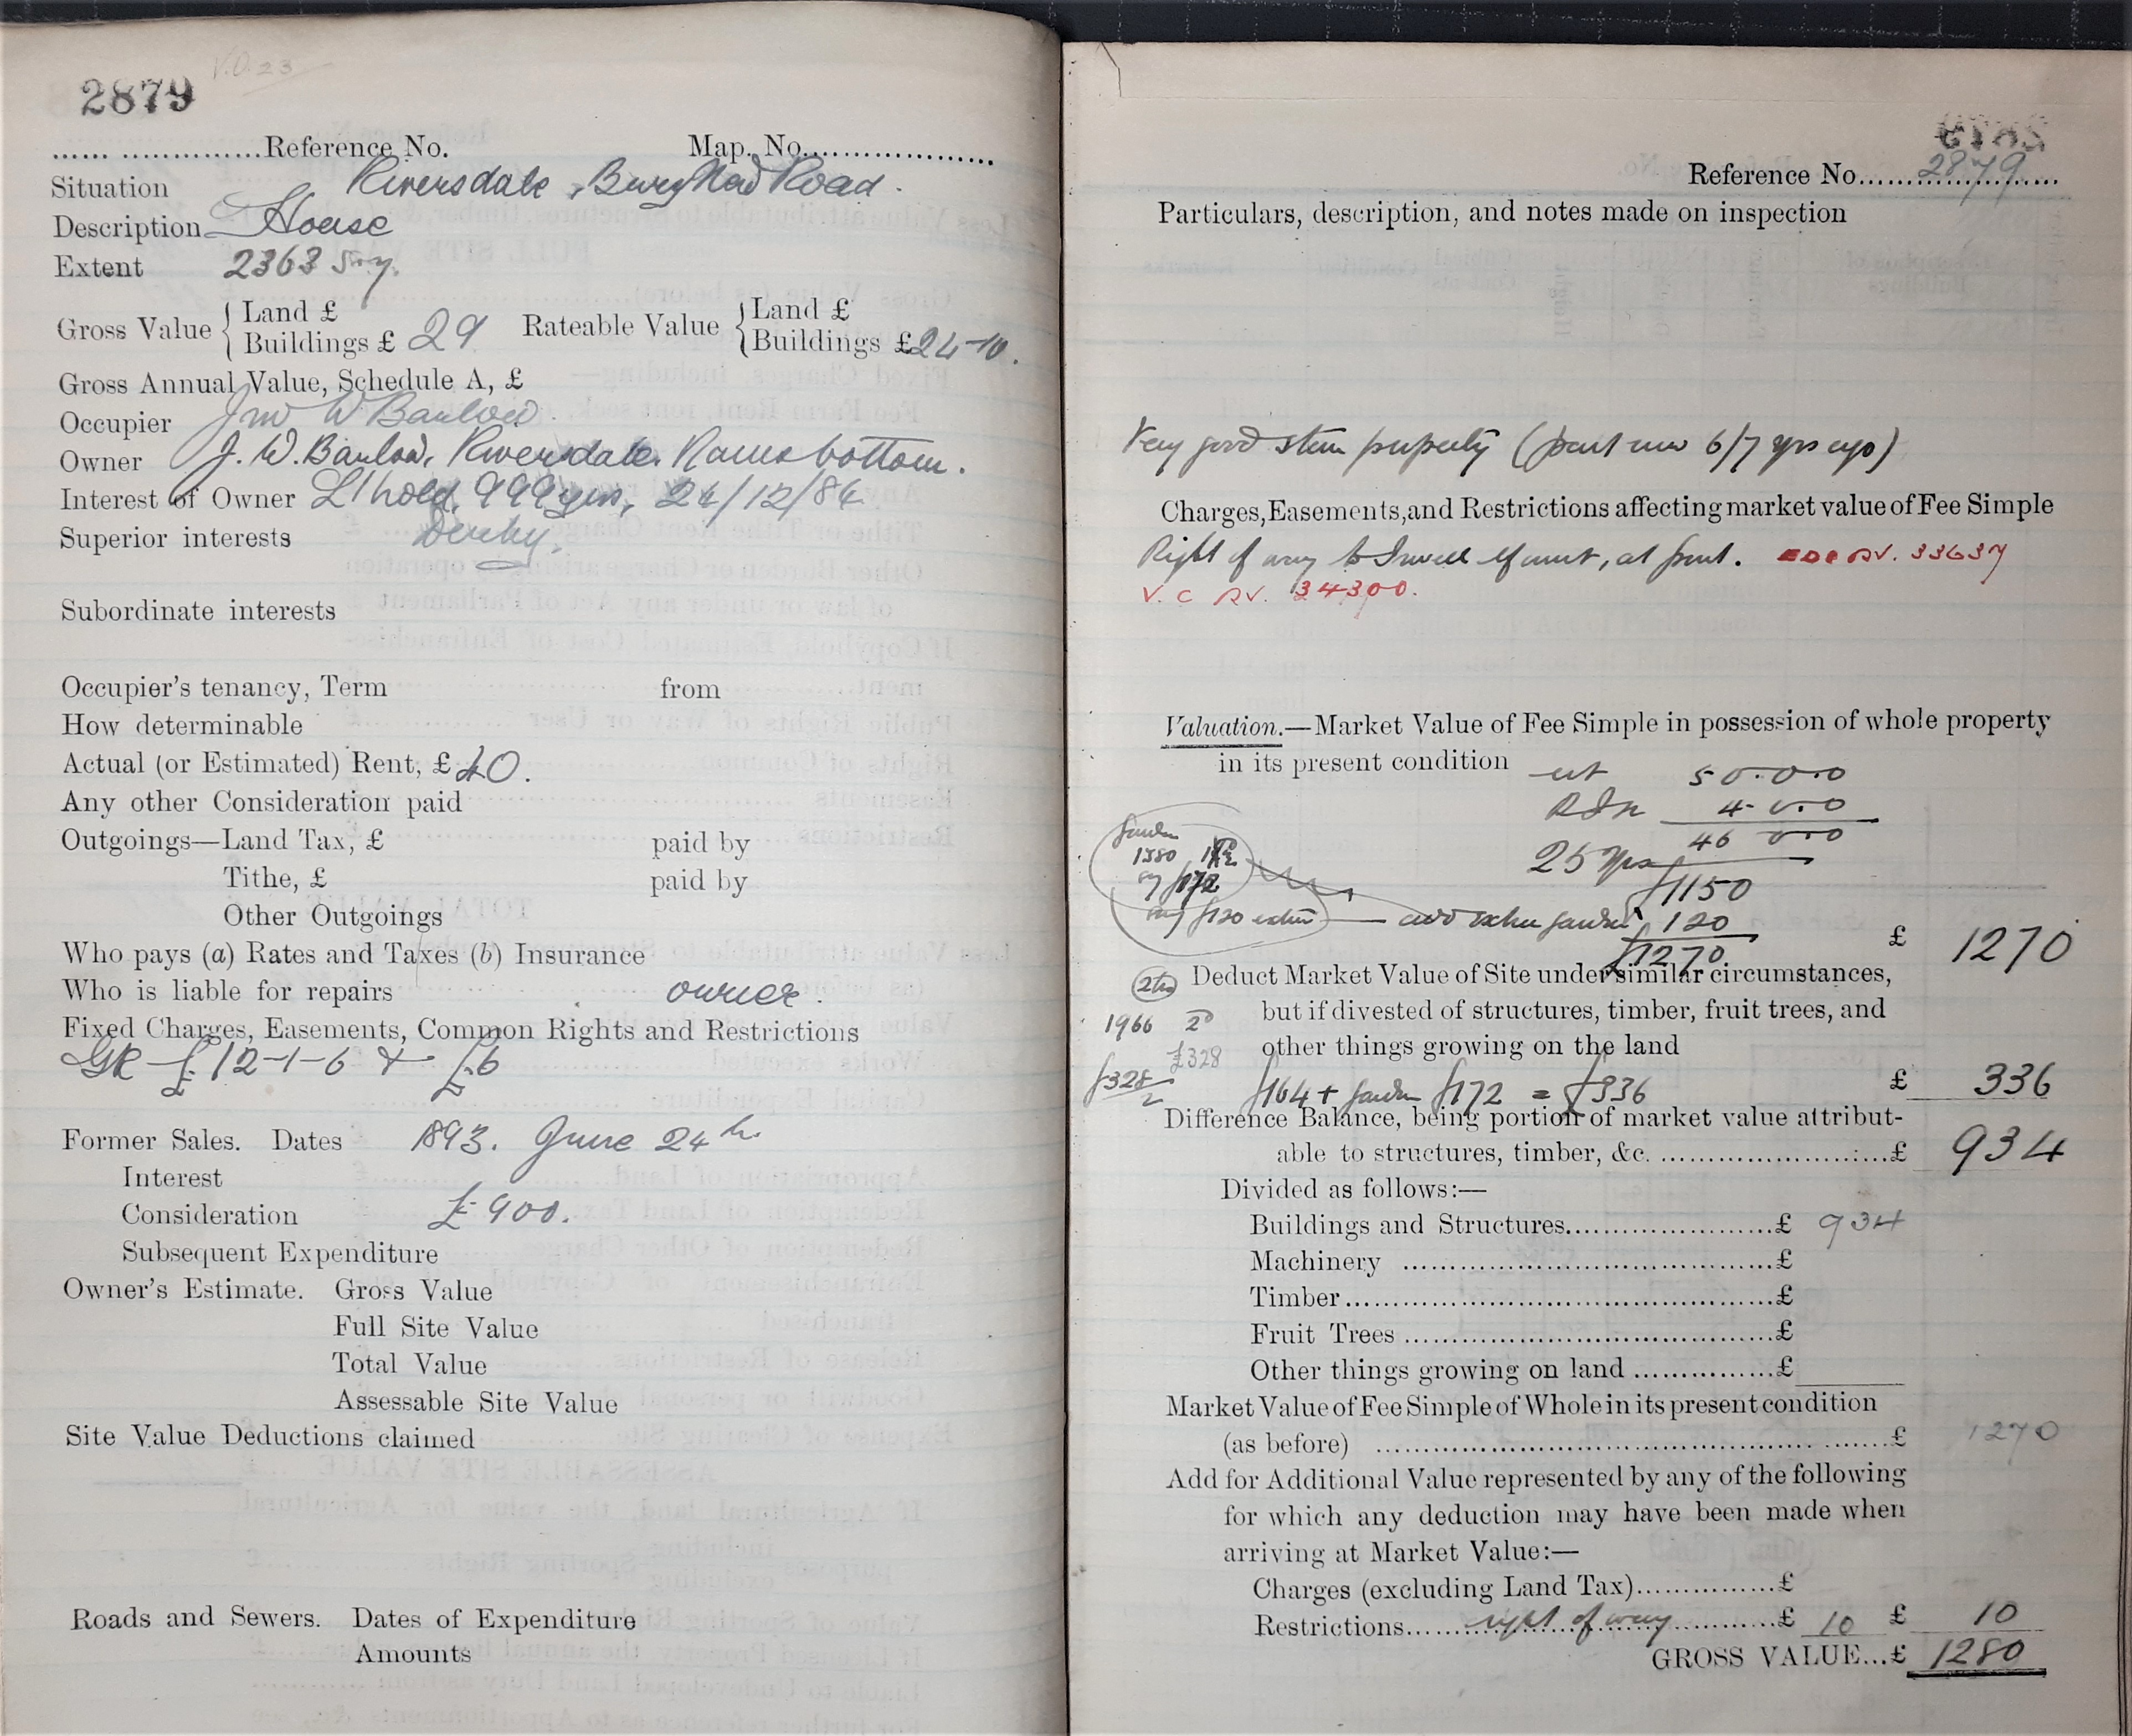 V.O. 23
2879
...... ...............Reference No. Map. No....................
Situation Riversdale, Bury New Road.
Description House
Extent 2363 s.y.
Gross Value { Land £ Rateable Value { Land £
Buildings £ 29 Buildings £24-10.
Gross Annual Value, Schedule A, £
Occupier W Barlow.
Owner J. W. Barlow, Riversdale. Ramsbottom.
Interest of Owner L'hold. 999 yrs, 24/12/84
Superior interests Derby.
Subordinate interests
Occupier's tenancy, Term from
How determinable
Actual (or Estimated) Rent, £ 40.
Any other Consideration paid
Outgoings—Land Tax, £ paid by
Tithe, £ paid by
Other Outgoings
Who pays (a) Rates and Taxes (b) Insurance
Who is liable for repairs owner.
Fixed Charges, Easements, Common Rights and Restrictions
GR £12-1-6 + £6
Former Sales. Dates 1893. June 24th.
Interest
Consideration £900.
Subsequent Expenditure
Owner's Estimate. Gross Value
Full Site Value
Total Value
Assessable Site Value
Site Value Deductions claimed
Roads and Sewers. Dates of Expenditure
Amounts
2879
Reference No....2879....
Particulars, description, and notes made on inspection
Very good stone property (part new 6/7 yrs ago)
Charges, Easements, and Restrictions affecting market value of Fee Simple
Right of way to Irwell, at front. RV. 33637
V. C RV. 34300.
Valuation.—Market Value of Fee Simple in possession of whole property
in its present condition est 50.0.0
4.0.0
46 0.0
25 yrs
£1150
garden
1380
say £172
say £120 extra — add extra garden 120
£1270
£ 1270
Deduct Market Value of Site under similar circumstances,
but if divested of structures, timber, fruit trees, and
1966 other things growing on the land
£328
£328/2 £164 + garden £172 = £336 £ 336
Difference Balance, being portion of market value attribut-
able to structures, timber, &c. ........................£ 934
Divided as follows:—
Buildings and Structures.....................£ 934
Machinery ........................................£
Timber..............................................£
Fruit Trees .......................................£
Other things growing on land ...............£
Market Value of Fee Simple of Whole in its present condition
(as before) .................................................£ 1270
Add for Additional Value represented by any of the following
for which any deduction may have been made when
arriving at Market Value:—
Charges (excluding Land Tax)...............£
Restrictions......right of way............£ 10 £ 10
GROSS VALUE...£ 1280